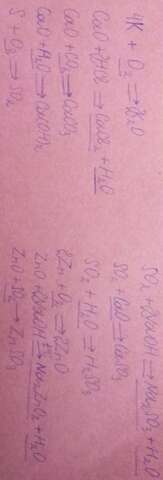 4K + O₂ → K₂O
CaO + 2HCl → CaCl₂ + H₂O
CaO + CO₂ → CaCO₃
CaO + H₂O → Ca(OH)₂
S + O₂ → SO₂
SO₂ + 2NaOH → Na₂SO₃ + H₂O
SO₂ + CaO → CaSO₃
SO₂ + H₂O → H₂SO₃
2Zn + O₂ → 2ZnO
ZnO + 2NaOH → Na₂ZnO₂ + H₂O
ZnO + SO₂ → ZnSO₃